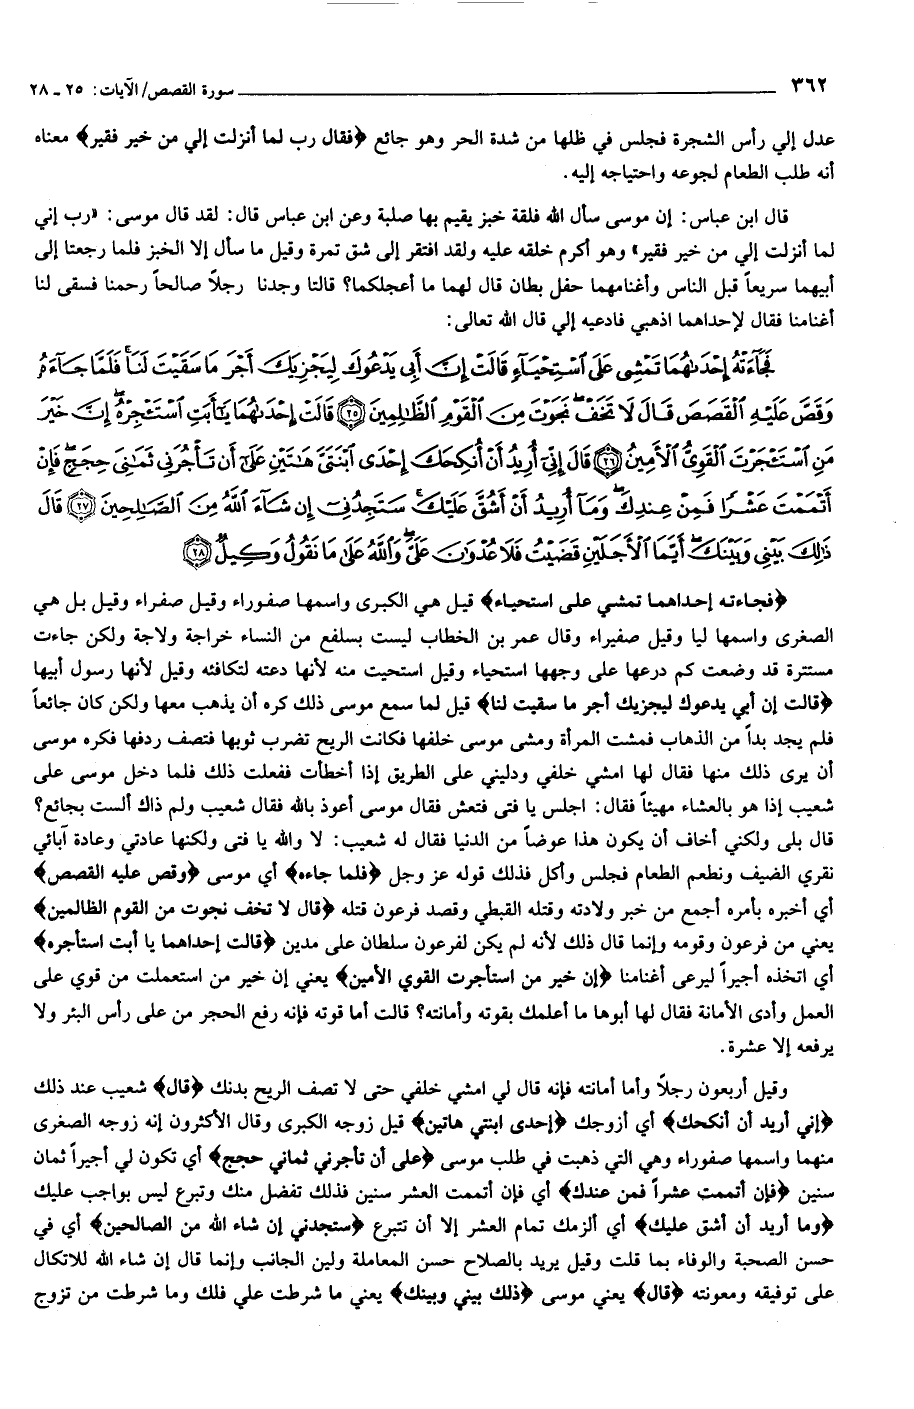 ٣٦٢ سورة القصص/ الآيات: ٢٥ ـ ٢٨
عدل إلي رأس الشجرة فجلس في ظلها من شدة الحر وهو جائع ﴿فقال رب لما أنزلت إلي من خير فقير﴾ معناه
أنه طلب الطعام لجوعه واحتياجه إليه.
قال ابن عباس: إن موسى سأل الله فلقة خبز يقيم بها صلبة وعن ابن عباس قال: لقد قال موسى: «رب إني
لما أنزلت إلي من خير فقير» وهو أكرم خلقه عليه ولقد افتقر إلى شق تمرة وقيل ما سأل إلا الخبز فلما رجعتا إلى
أبيهما سريعاً قبل الناس وأغنامهما حفل بطان قال لهما ما أعجلكما؟ قالتا وجدنا رجلاً صالحاً رحمنا فسقى لنا
أغنامنا فقال لإحداهما اذهبي فادعيه إلي قال الله تعالى:
فَجَآءَتْهُ إِحْدَىٰهُمَا تَمْشِى عَلَى ٱسْتِحْيَآءٍ قَالَتْ إِنَّ أَبِى يَدْعُوكَ لِيَجْزِيَكَ أَجْرَ مَا سَقَيْتَ لَنَا ۚ فَلَمَّا جَآءَهُ
وَقَصَّ عَلَيْهِ ٱلْقَصَصَ قَالَ لَا تَخَفْ ۖ نَجَوْتَ مِنَ ٱلْقَوْمِ ٱلظَّٰلِمِينَ ﴿٢٥﴾ قَالَتْ إِحْدَىٰهُمَا يَٰٓأَبَتِ ٱسْتَـْٔجِرْهُ ۖ إِنَّ خَيْرَ
مَنِ ٱسْتَـْٔجَرْتَ ٱلْقَوِىُّ ٱلْأَمِينُ ﴿٢٦﴾ قَالَ إِنِّىٓ أُرِيدُ أَنْ أُنكِحَكَ إِحْدَى ٱبْنَتَىَّ هَٰتَيْنِ عَلَىٰٓ أَن تَأْجُرَنِى ثَمَٰنِىَ حِجَجٍ ۖ فَإِنْ
أَتْمَمْتَ عَشْرًا فَمِنْ عِندِكَ ۖ وَمَآ أُرِيدُ أَنْ أَشُقَّ عَلَيْكَ ۚ سَتَجِدُنِىٓ إِن شَآءَ ٱللَّهُ مِنَ ٱلصَّٰلِحِينَ ﴿٢٧﴾ قَالَ
ذَٰلِكَ بَيْنِى وَبَيْنَكَ ۖ أَيَّمَا ٱلْأَجَلَيْنِ قَضَيْتُ فَلَا عُدْوَٰنَ عَلَىَّ ۖ وَٱللَّهُ عَلَىٰ مَا نَقُولُ وَكِيلٌ ﴿٢٨﴾
﴿فجاءته إحداهما تمشي على استحياء﴾ قيل هي الكبرى واسمها صفوراء وقيل صفراء وقيل بل هي
الصغرى واسمها ليا وقيل صفيراء وقال عمر بن الخطاب ليست بسلفع من النساء خراجة ولاجة ولكن جاءت
مستترة قد وضعت كم درعها على وجهها استحياء وقيل استحيت منه لأنها دعته لتكافئه وقيل لأنها رسول أبيها
﴿قالت إن أبي يدعوك ليجزيك أجر ما سقيت لنا﴾ قيل لما سمع موسى ذلك كره أن يذهب معها ولكن كان جائعاً
فلم يجد بداً من الذهاب فمشت المرأة ومشى موسى خلفها فكانت الريح تضرب ثوبها فتصف ردفها فكره موسى
أن يرى ذلك منها فقال لها امشي خلفي ودليني على الطريق إذا أخطأت ففعلت ذلك فلما دخل موسى على
شعيب إذا هو بالعشاء مهيئاً فقال: اجلس يا فتى فتعش فقال موسى أعوذ بالله فقال شعيب ولم ذاك ألست بجائع؟
قال بلى ولكني أخاف أن يكون هذا عوضاً من الدنيا فقال له شعيب: لا والله يا فتى ولكنها عادتي وعادة آبائي
نقري الضيف ونطعم الطعام فجلس وأكل فذلك قوله عز وجل ﴿فلما جاءه﴾ أي موسى ﴿وقص عليه القصص﴾
أي أخبره بأمره أجمع من خبر ولادته وقتله القبطي وقصد فرعون قتله ﴿قال لا تخف نجوت من القوم الظالمين﴾
يعني من فرعون وقومه وإنما قال ذلك لأنه لم يكن لفرعون سلطان على مدين ﴿قالت إحداهما يا أبت استأجره﴾
أي اتخذه أجيراً ليرعى أغنامنا ﴿إن خير من استأجرت القوي الأمين﴾ يعني إن خير من استعملت من قوي على
العمل وأدى الأمانة فقال لها أبوها ما أعلمك بقوته وأمانته؟ قالت أما قوته فإنه رفع الحجر من على رأس البئر ولا
يرفعه إلا عشرة.
وقيل أربعون رجلاً وأما أمانته فإنه قال لي امشي خلفي حتى لا تصف الريح بدنك ﴿قال﴾ شعيب عند ذلك
﴿إني أريد أن أنكحك﴾ أي أزوجك ﴿إحدى ابنتي هاتين﴾ قيل زوجه الكبرى وقال الأكثرون إنه زوجه الصغرى
منهما واسمها صفوراء وهي التي ذهبت في طلب موسى ﴿على أن تأجرني ثماني حجج﴾ أي تكون لي أجيراً ثمان
سنين ﴿فإن أتممت عشراً فمن عندك﴾ أي فإن أتممت العشر سنين فذلك تفضل منك وتبرع ليس بواجب عليك
﴿وما أريد أن أشق عليك﴾ أي ألزمك تمام العشر إلا أن تتبرع ﴿ستجدني إن شاء الله من الصالحين﴾ أي في
حسن الصحبة والوفاء بما قلت وقيل يريد بالصلاح حسن المعاملة ولين الجانب وإنما قال إن شاء الله للاتكال
على توفيقه ومعونته ﴿قال﴾ يعني موسى ﴿ذلك بيني وبينك﴾ يعني ما شرطت علي فلك وما شرطت من تزوج